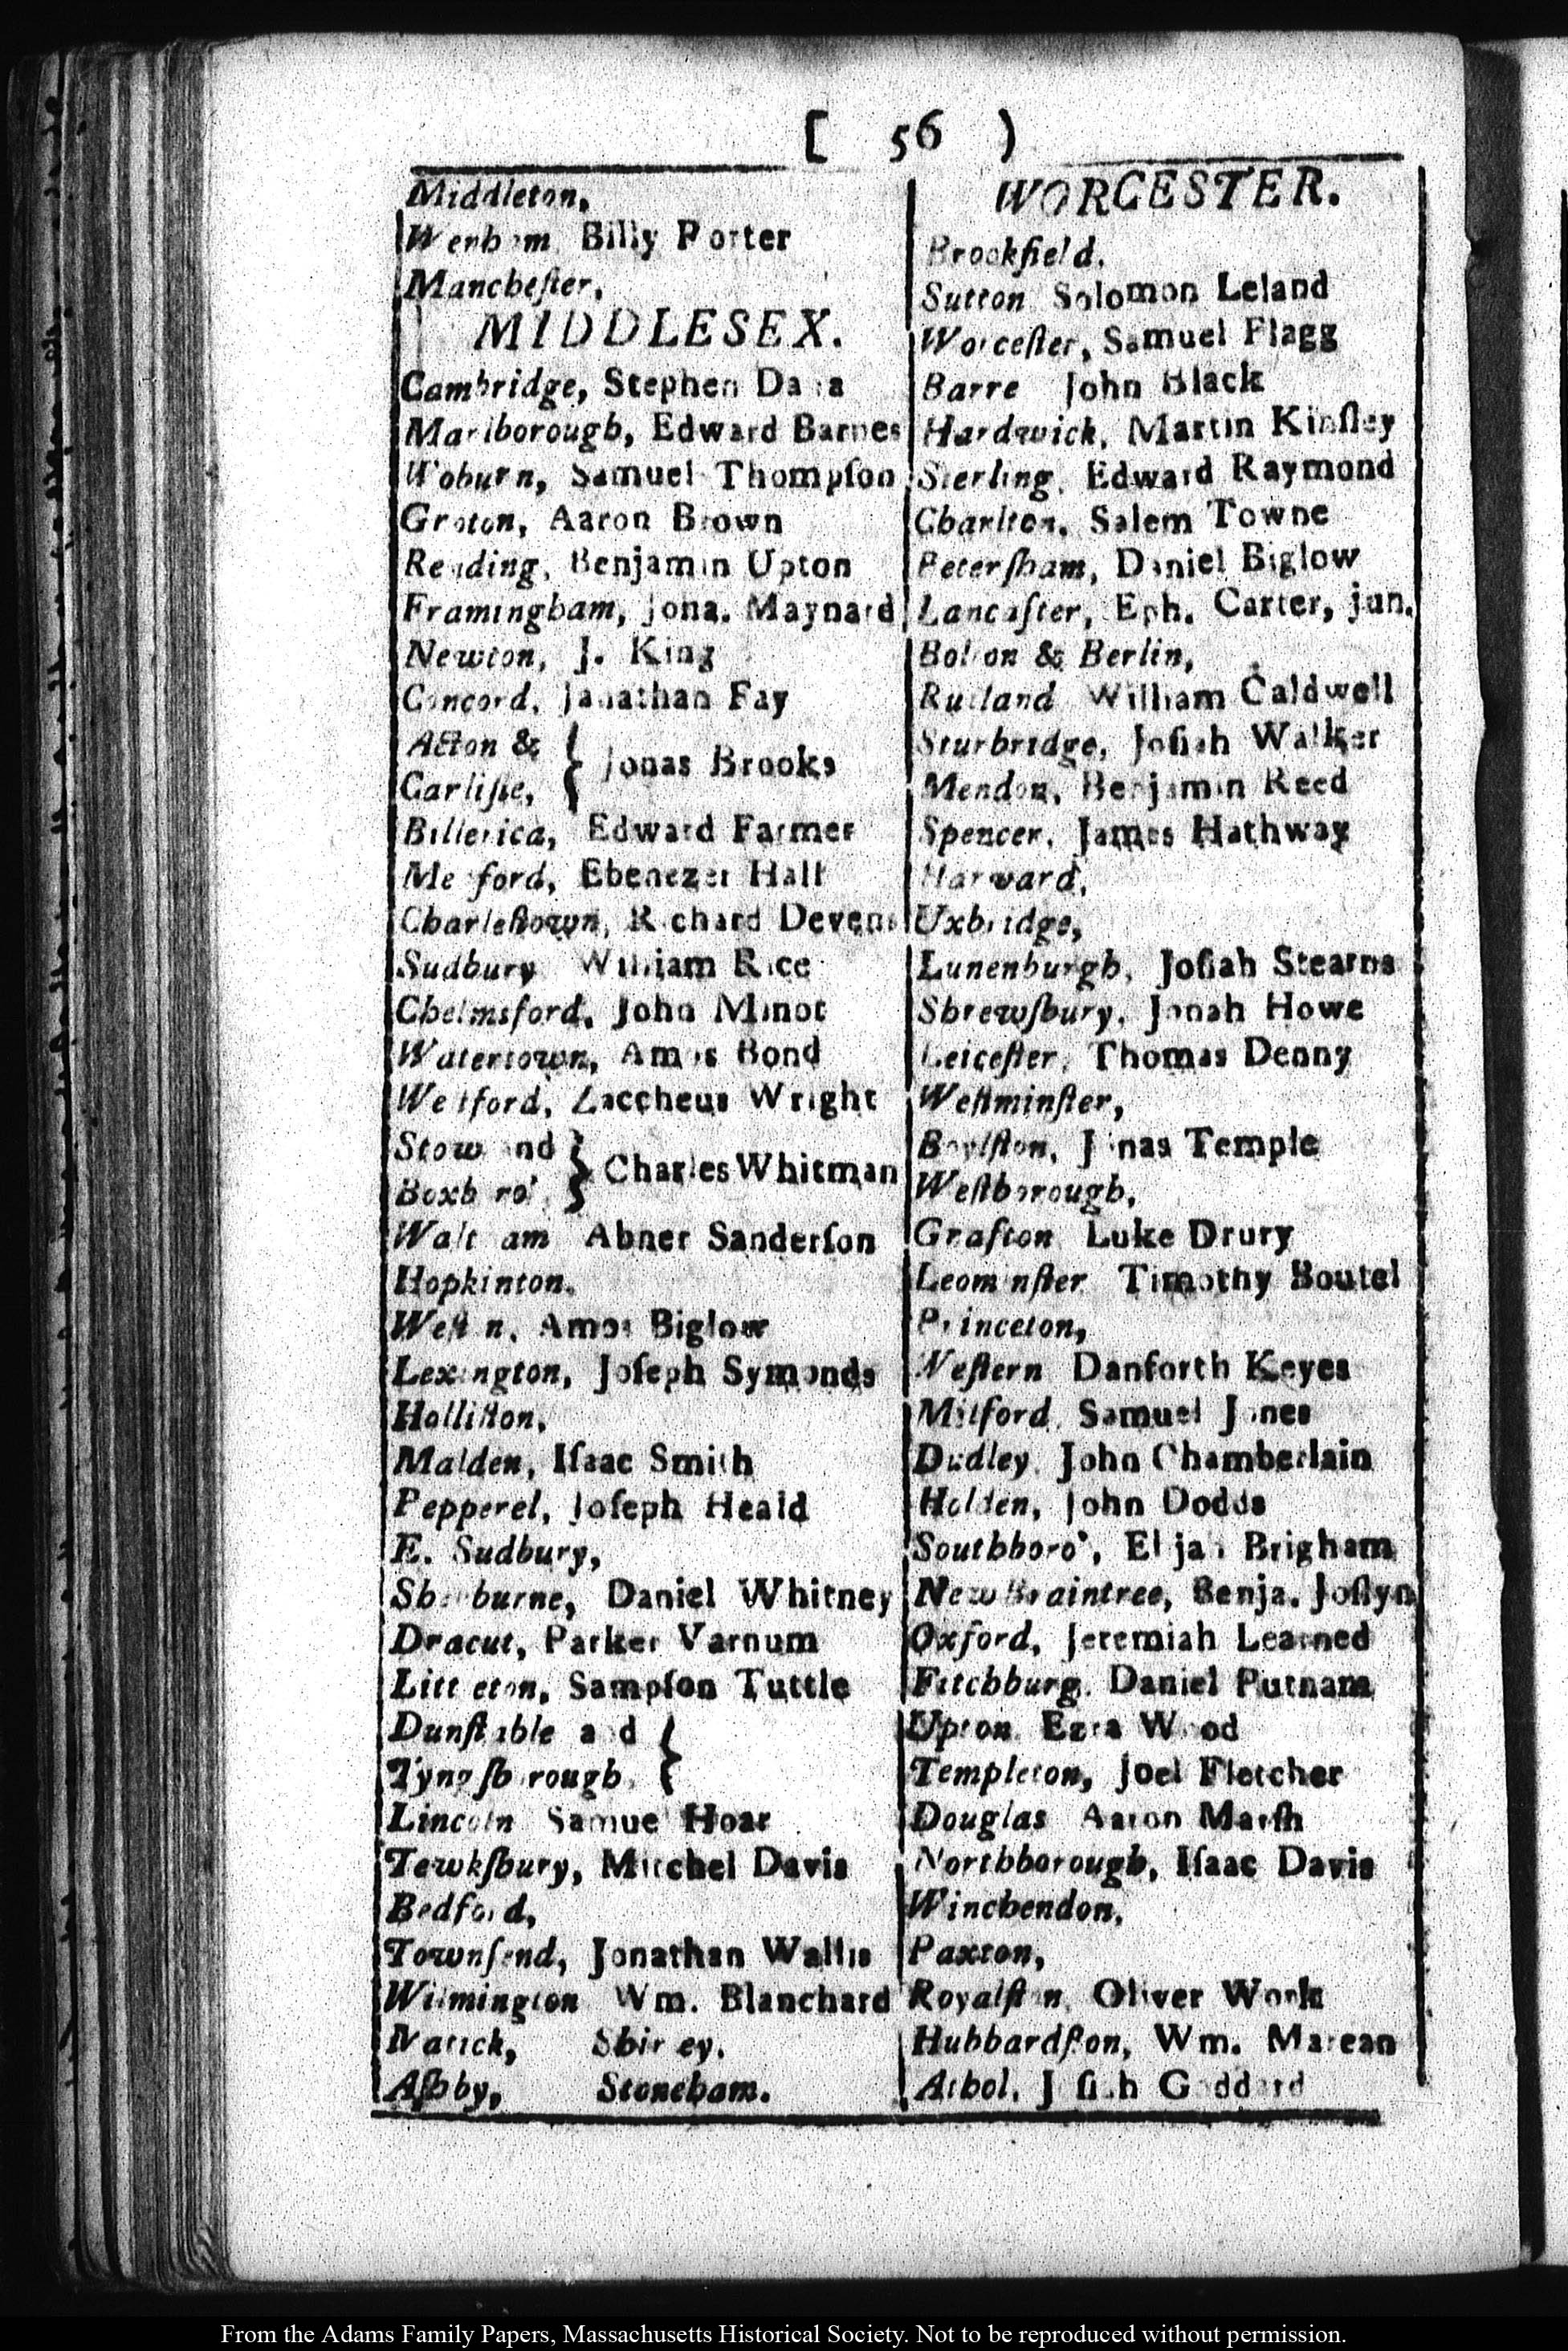 [ 56 )
Middleton,
Wenham, Billy Porter
Mancheſter,
MIDDLESEX.
Cambridge, Stephen Dana
Marlborough, Edward Barnes
Woburn, Samuel Thompſon
Groton, Aaron Brown
Reading, Benjamin Upton
Framingham, Jona. Maynard
Newton, J. King
Concord, Janathan Fay
Acton & }
Carliſle, } Jonas Brooks
Billerica, Edward Farmer
Medford, Ebenezer Hall
Charleſtown, Richard Devens
Sudbury William Rice
Chelmsford, John Minot
Watertown, Amos Bond
Weſtford, Zaccheus Wright
Stow and }
Boxboro', } Charles Whitman
Waltham Abner Sanderſon
Hopkinton,
Weſton, Amos Biglow
Lexington, Joſeph Symonds
Holliſton,
Malden, Iſaac Smith
Pepperel, Joſeph Heald
E. Sudbury,
Sherburne, Daniel Whitney
Dracut, Parker Varnum
Littleton, Sampſon Tuttle
Dunſtable and }
Tyngſborough, }
Lincoln Samuel Hoar
Tewkſbury, Mitchel Davis
Bedford,
Townſend, Jonathan Wallis
Wilmington Wm. Blanchard
Natick, Shirley.
Aſhby, Stoneham.
WORCESTER.
Brookfield.
Sutton Solomon Leland
Worceſter, Samuel Flagg
Barre John Black
Hardwick, Martin Kinſley
Sterling, Edward Raymond
Charlton, Salem Towne
Peterſham, Daniel Biglow
Lancaſter, Eph. Carter, jun.
Bolton & Berlin,
Rutland William Caldwell
Sturbridge, Joſiah Walker
Mendon, Benjamin Reed
Spencer, James Hathway
Harward,
Uxbridge,
Lunenburgh, Joſiah Stearns
Shrewſbury, Jonah Howe
Leiceſter, Thomas Denny
Weſtminſter,
Boylſton, Jonas Temple
Weſtborough,
Grafton Luke Drury
Leominſter Timothy Boutel
Princeton,
Weſtern Danforth Keyes
Milford, Samuel Jones
Dudley, John Chamberlain
Holden, John Dodds
Southboro', Elijah Brigham
New Braintree, Benja. Joſlyn
Oxford, Jeremiah Learned
Fitchburg, Daniel Putnam
Upton Ezra Wood
Templeton, Joel Fletcher
Douglas Aaron Marſh
Northborough, Iſaac Davis
Winchendon,
Paxton,
Royalſton, Oliver Work
Hubbardſton, Wm. Marean
Athol, Joſiah Goddard
From the Adams Family Papers, Massachusetts Historical Society. Not to be reproduced without permission.